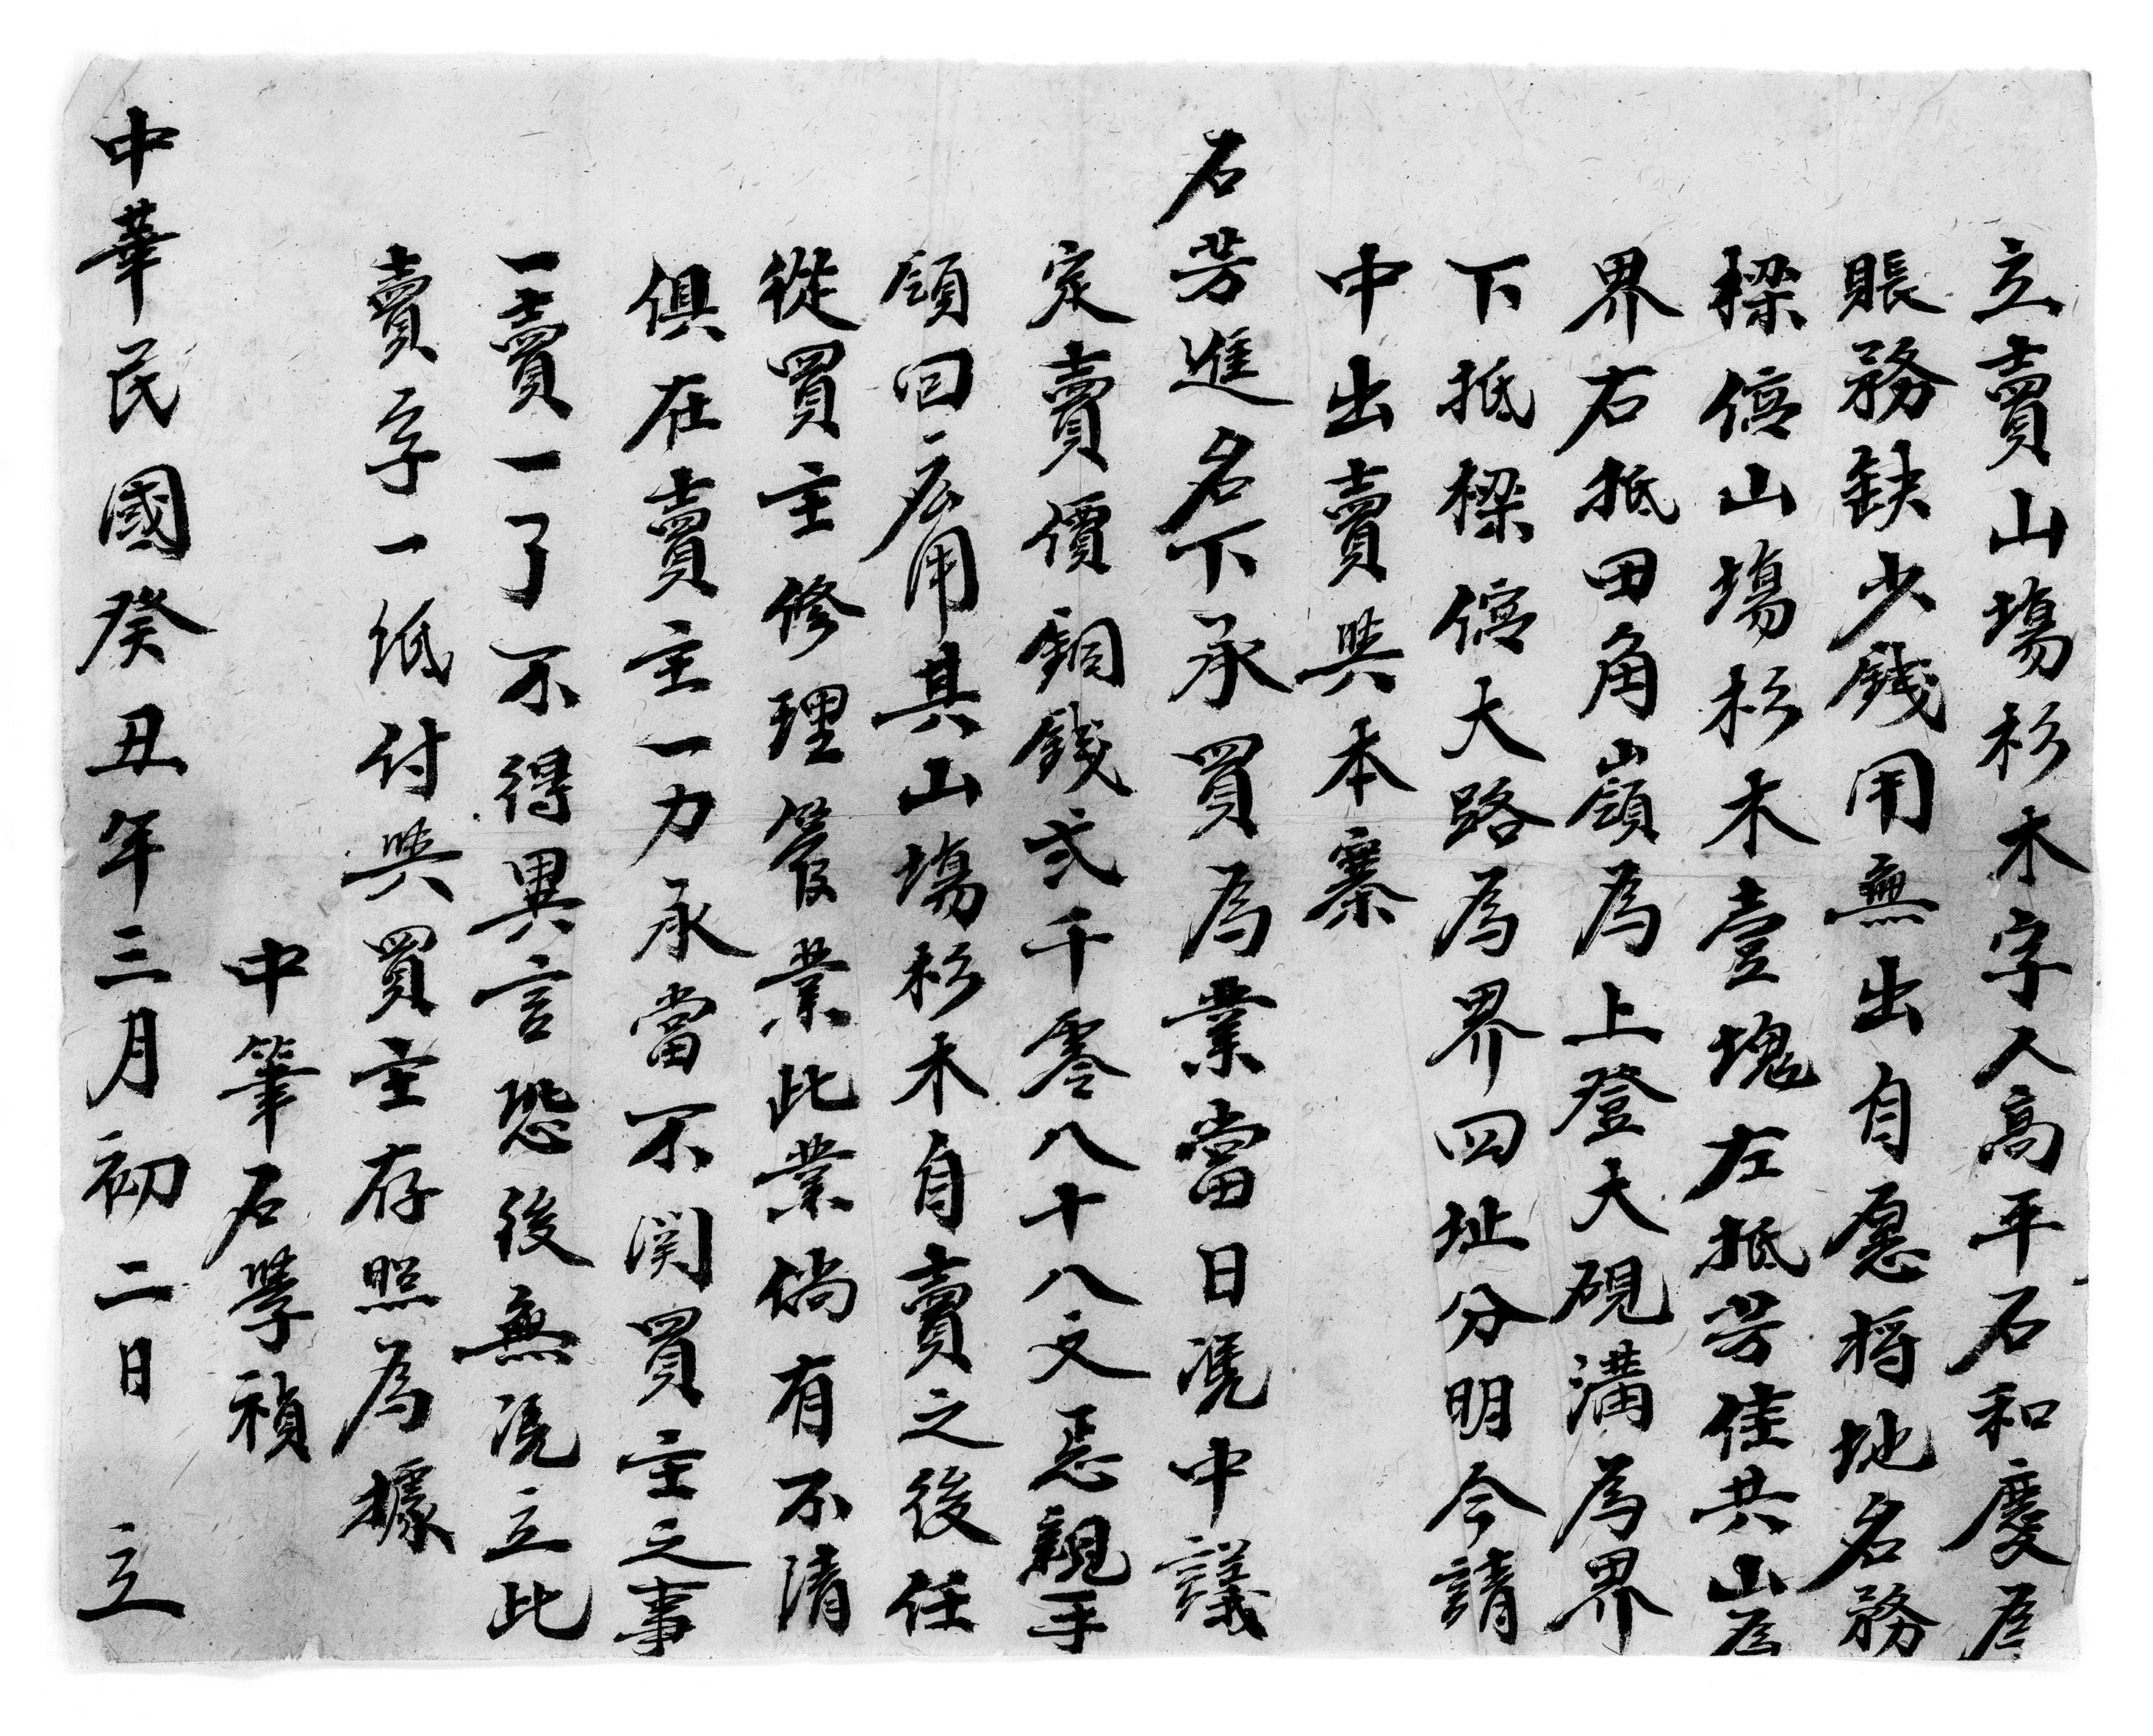 立賣山塲杉木字人高平石和慶爲
賬務缺少錢用無出自愿将地名務
樑倍山塲杉木壹塊左抵芳佳共山爲
界右抵田角嶺為上登大硯溝為界
下抵樑倍大路為界四址分明今請
中出賣與本寨
石芳進名下承買為業當日凴中議
定賣價銅錢弍千零八十八文恴親手
領回应用其山塲杉木自賣之後任
從買主修理管業此業倘有不清
俱在賣主一力承當不関買主之事
一賣一了不得異言恐後無凴立此
賣字一纸付與買主存照為據
中筆石學禎
中華民國癸丑年三月初二日 立